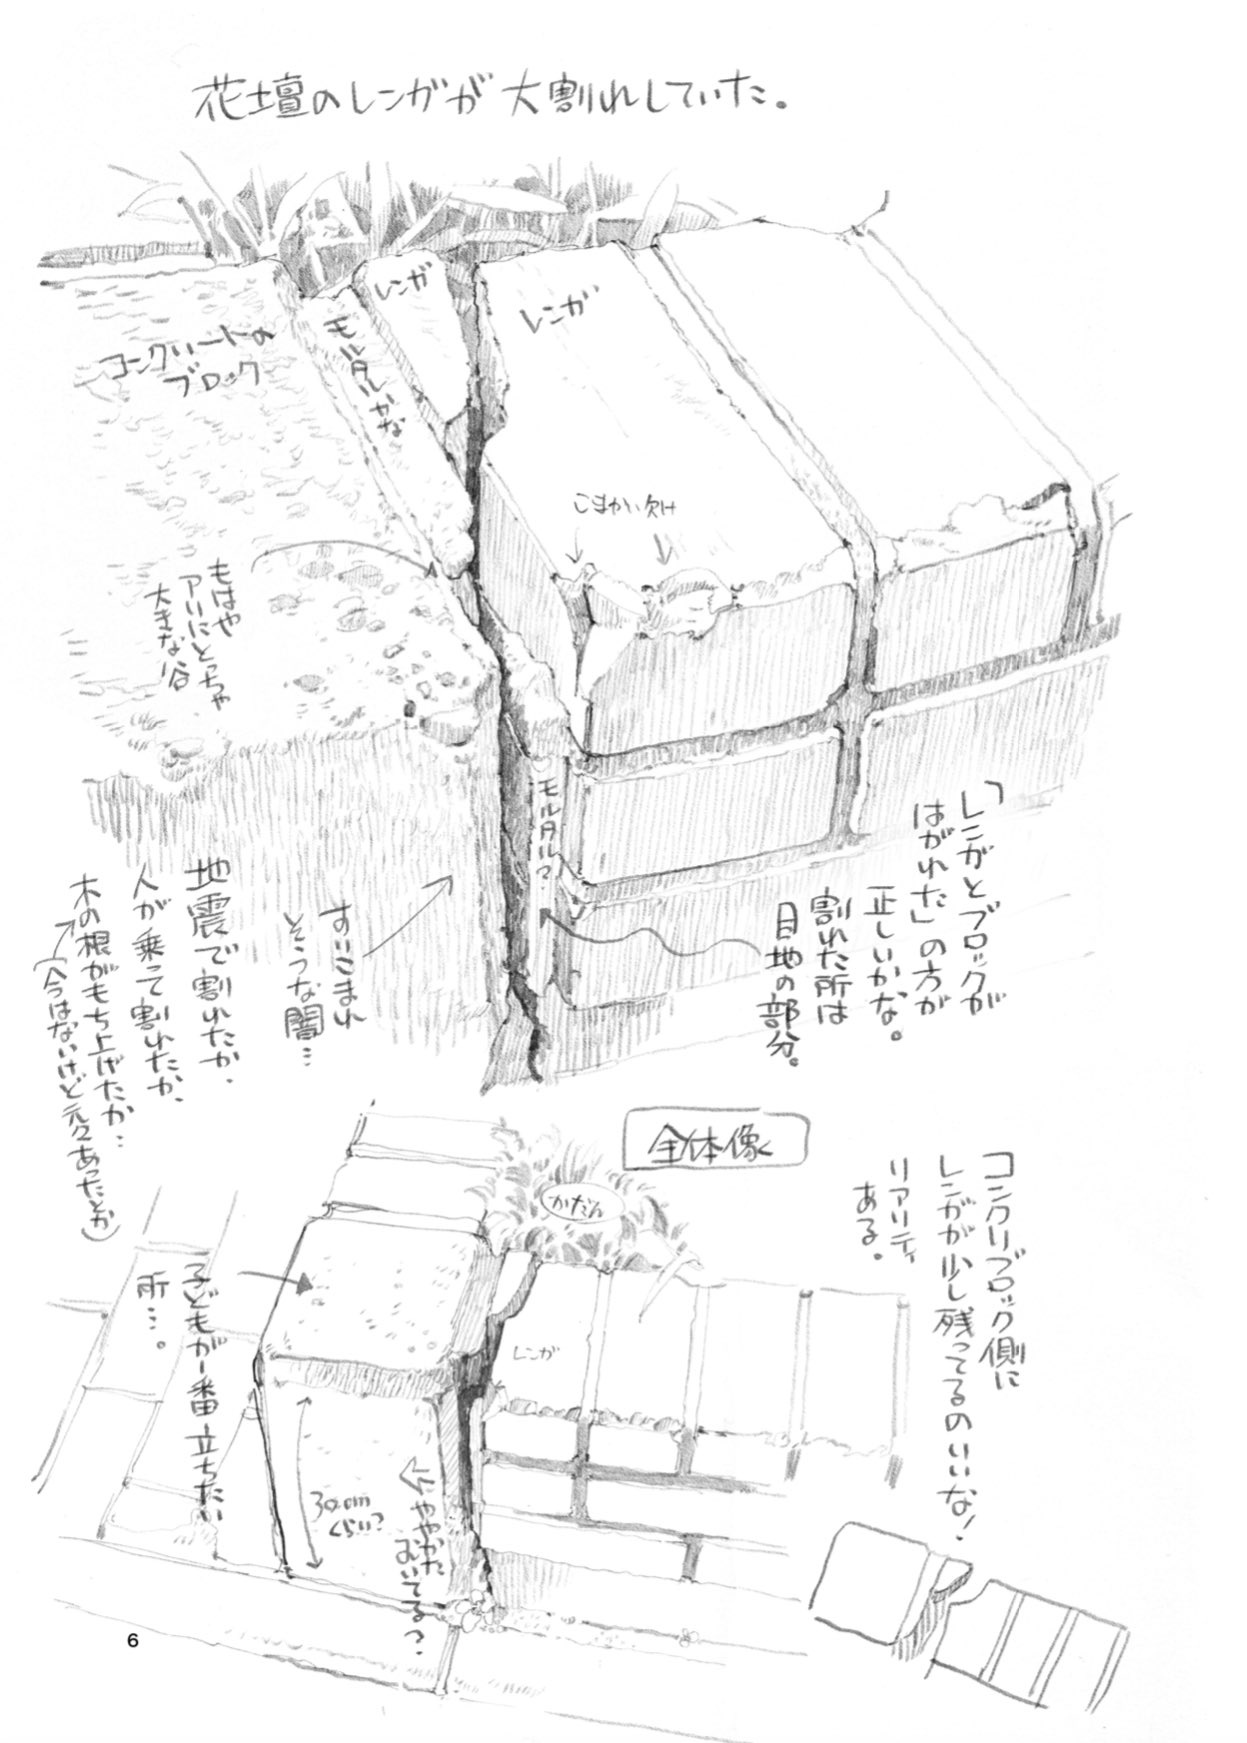 花壇のレンガが大割れしていた。
レンガ
レンガ
モルタルかな
コンクリートの
ブロック
こまかい欠け
もはや
アリにとっちゃ
大きな谷
モルタル?
「レンガとブロックが
はがれた」の方が
正しいかな。
割れた所は
目地の部分。
すいこまれ
そうな闇…
地震で割れたか、
人が乗って割れたか、
木の根がもち上げたか…
(今はないけど元々あったとか)
全体像
かだん
コンクリブロック側に
レンガが少し残ってるのいいな!
リアリティ
ある。
子どもが一番立ちたい
所…。
レンガ
30cm
くらい?
ややかた
むいてる?
6